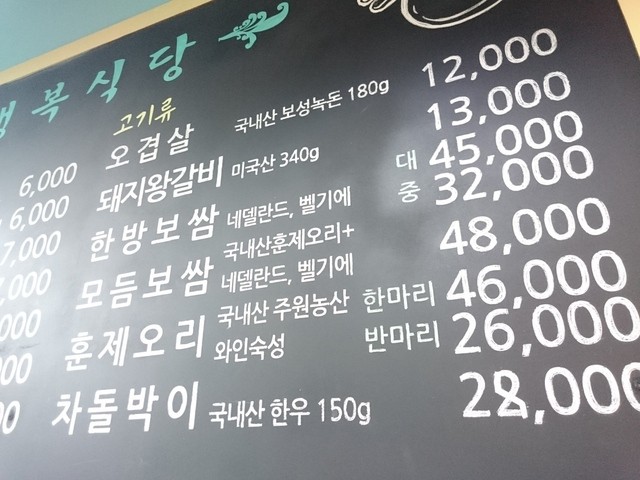 행복식당
고기류
오겹살 국내산 보성녹돈 180g 12,000
돼지왕갈비 미국산 340g 13,000
한방보쌈 네델란드, 벨기에 대 45,000
중 32,000
모듬보쌈 국내산훈제오리+ 네델란드, 벨기에 48,000
훈제오리 국내산 주원농산 와인숙성 한마리 46,000
반마리 26,000
차돌박이 국내산 한우 150g 28,000
6,000
6,000
7,000